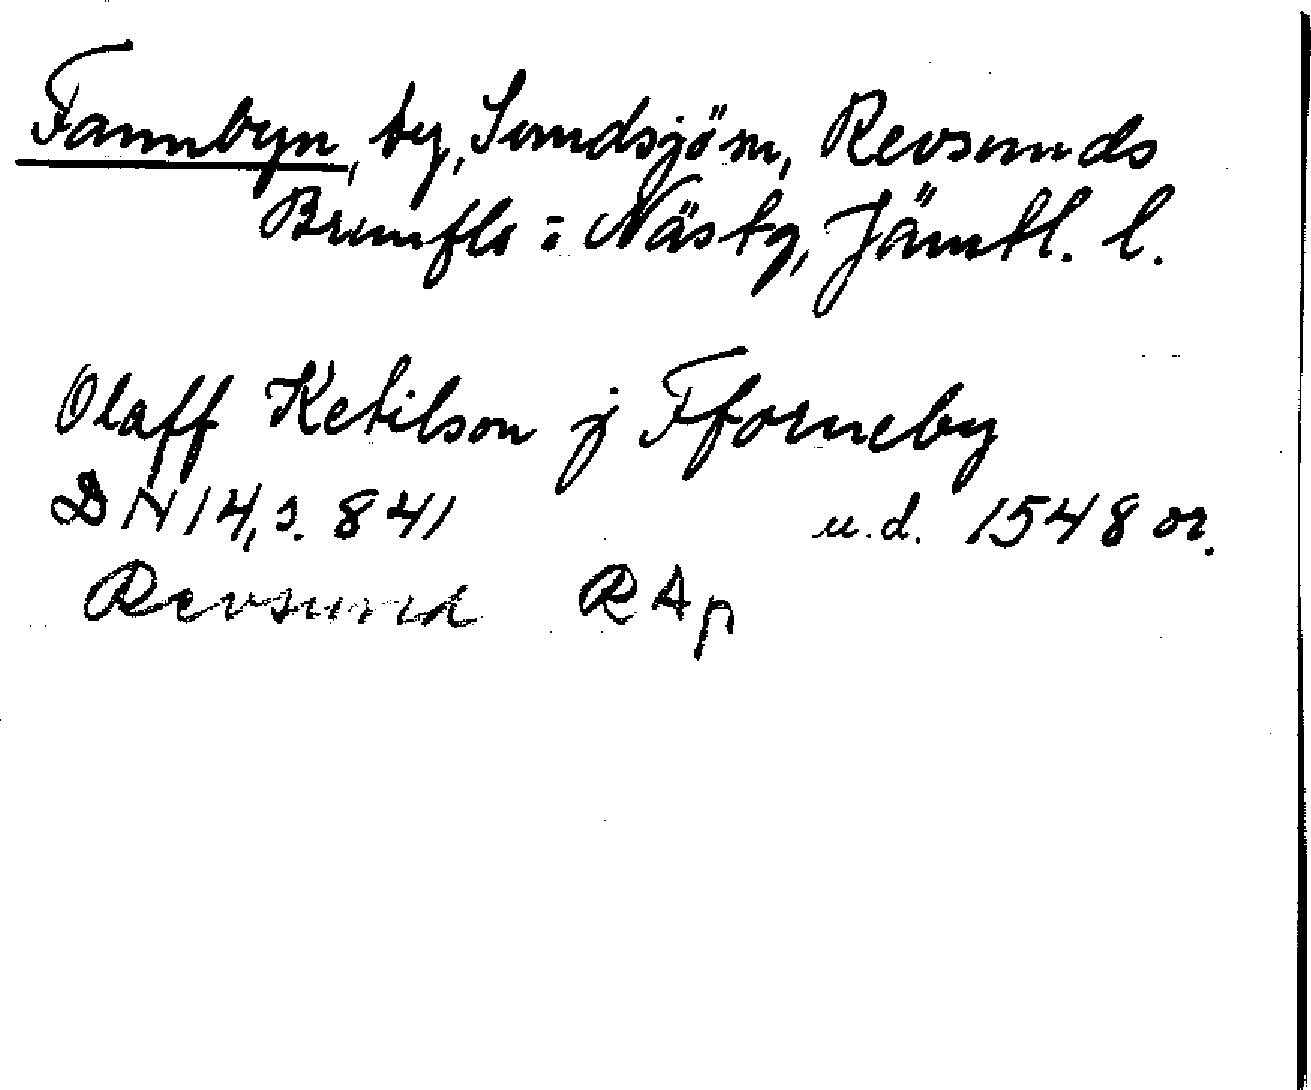 Fannbyn, by, Sundsjöm, Revsunds
Brunflo = Näsby, Jämtl. l.
Olaff Ketilson j Fforneby
DN 14, s. 841 u.d. 1548 or.
Revsund RAp